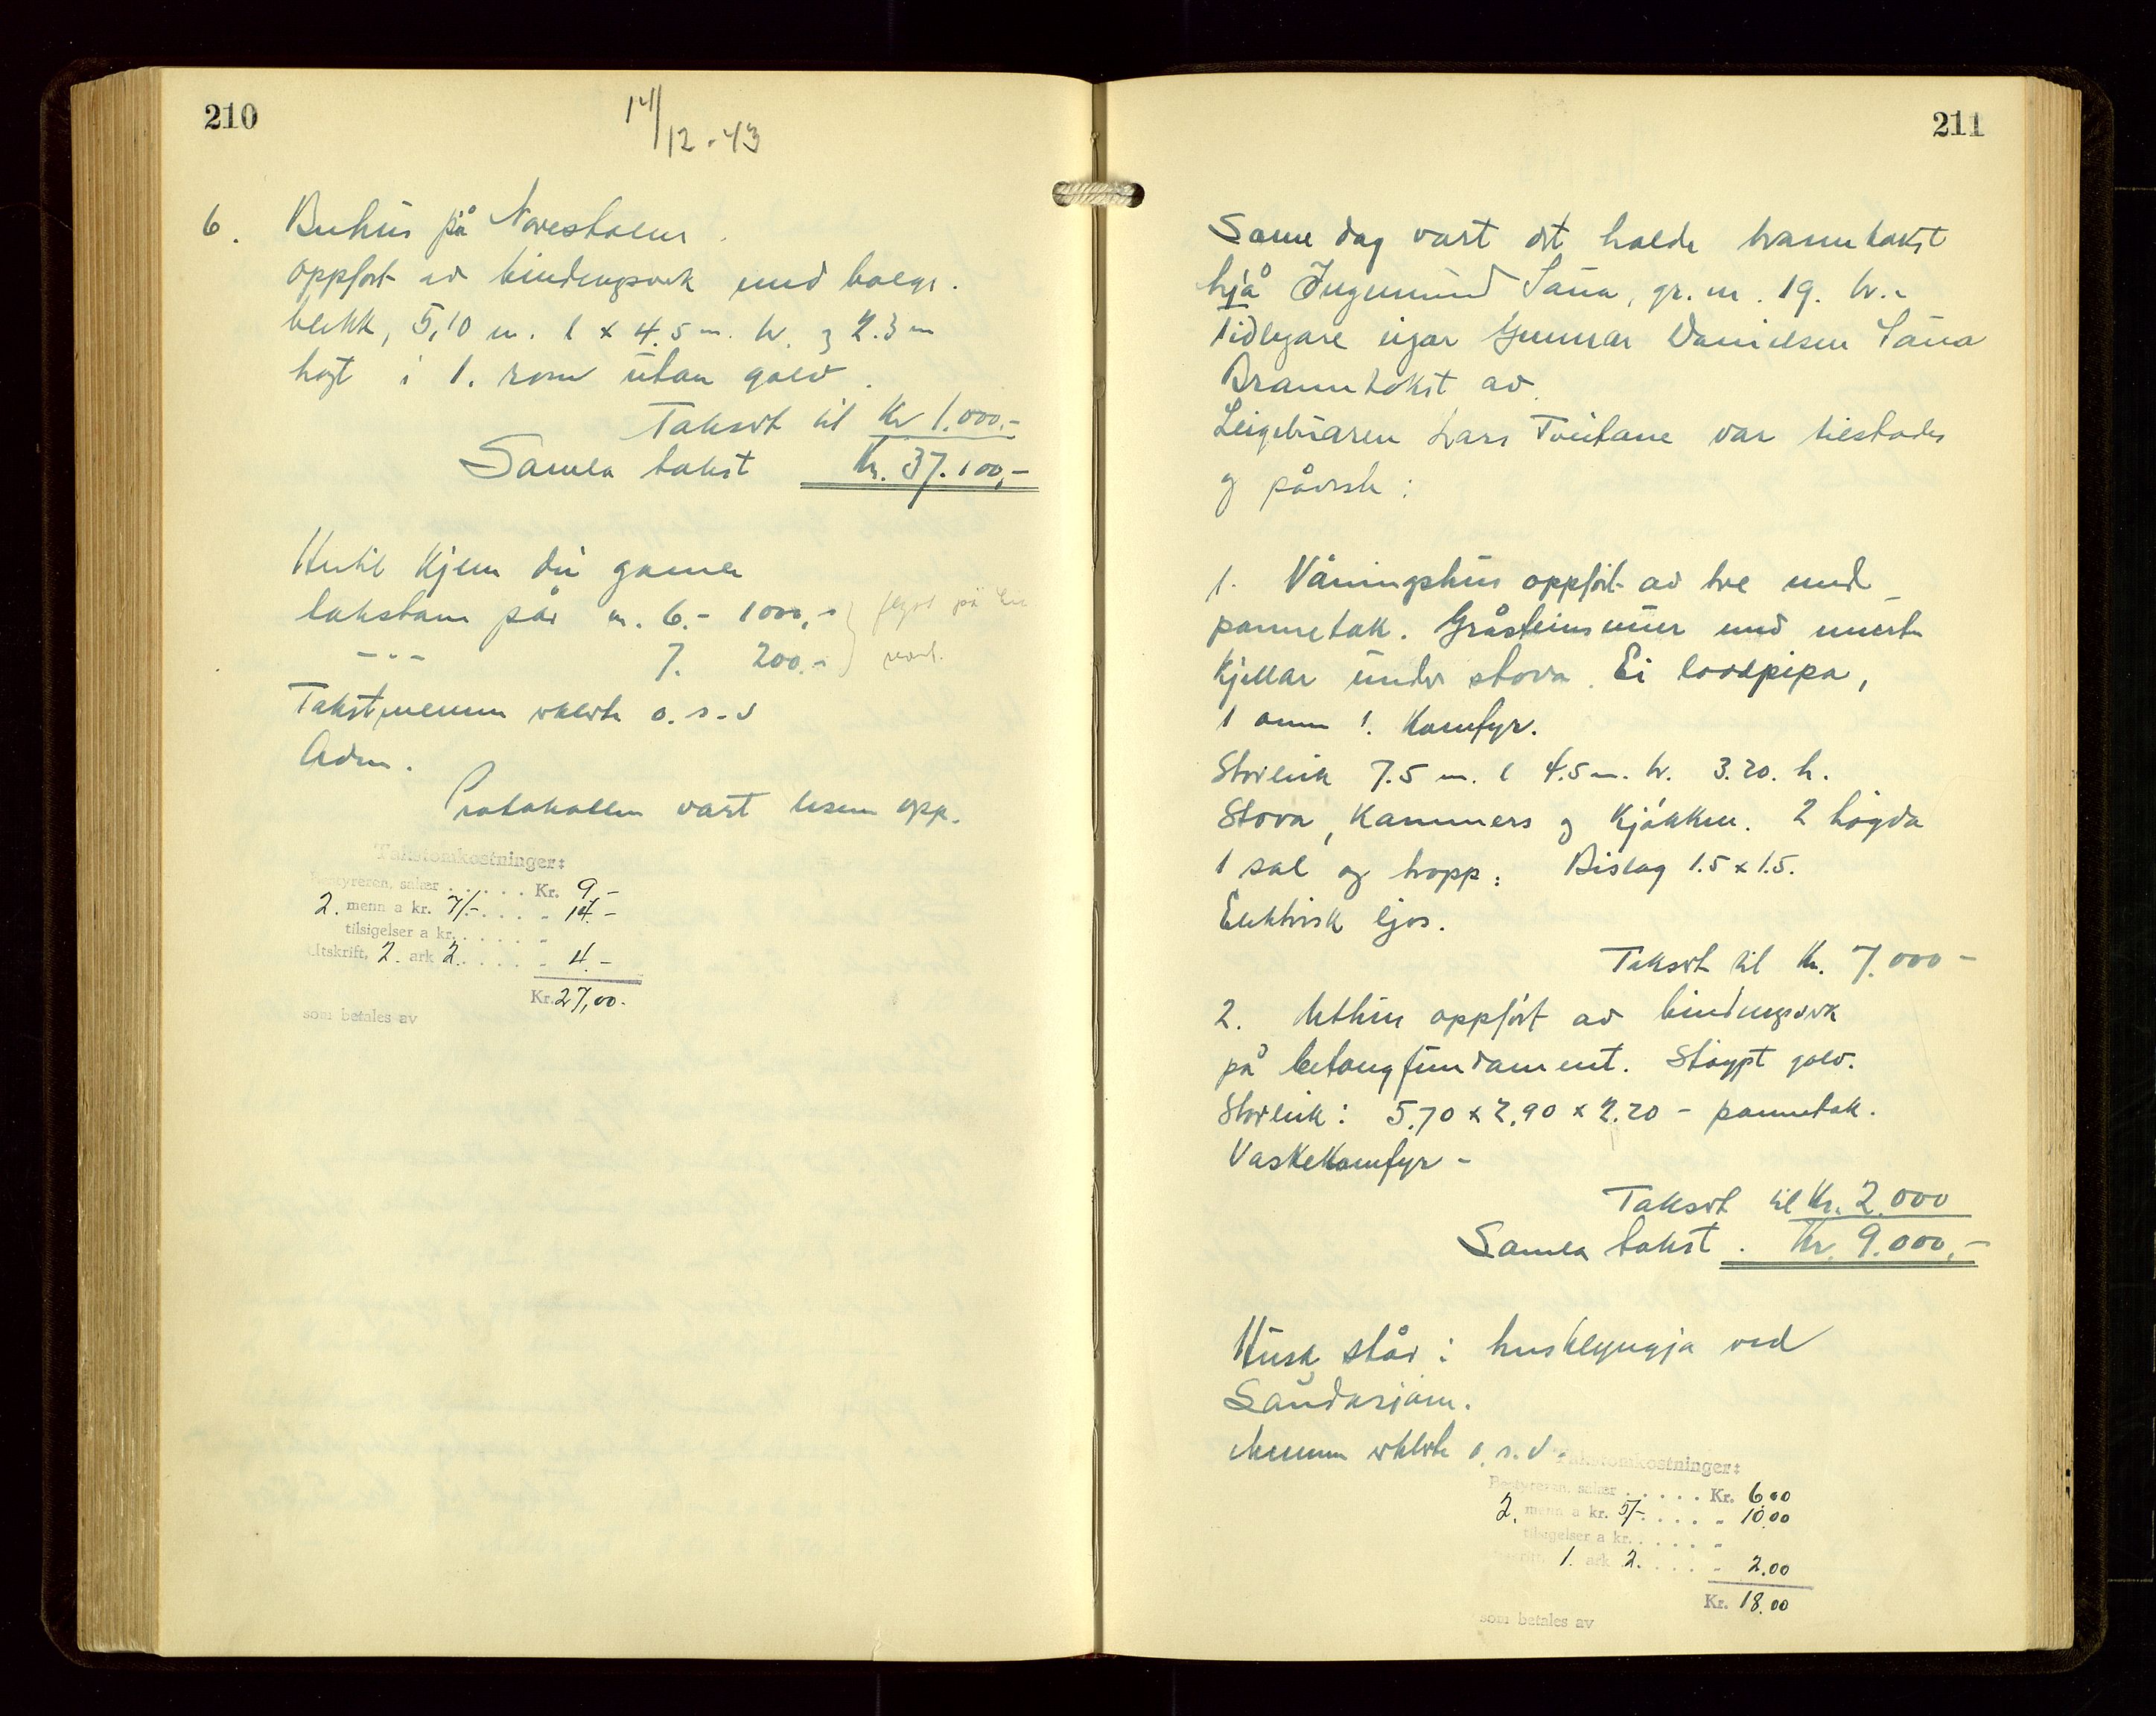 210
14/12-43
6. Buhus på Novestølen.
Oppført av bindingsverk med bølgj.
blekk, 5,10 m. l x 4.5 m. br. og 2.3 m
høgt i 1. rom utan golv.
Taksert til Kr 1.000.-
Samla takst Kr. 37.100,-
Hertil kjem dei gamle
takstane på nr. 6.- 1000,-
-"- 7. 200.-
Takstmennene erklærte o.s.v
Adm.
Protokollen vart lesen opp.
Takstomkostninger:
Bestyreren, salær . . . . . Kr. 9,-
2. menn a kr. 7/- . . . . - 14.-
tilsigelser a kr. . . . . . -
Utskrift, 2. ark 2. . . . . - 4.-
Kr. 27,00.-
som betales av
211
Same dag vart det halde branntakst
hjå Ingemund Saua, gr. nr. 19. br.-
Tidlegare eigar Gunnar Danielsen Saua
Branntakst av.
Leigebuaren Lars Tveitane var tilstades
og påviste:
1. Våningshus oppført av tre med
pannetak. Gråsteinsmur med innreda
kjellar under stova. Ei loddpipa,
1 omn 1. Komfyr.
Storleik 7.5 m. l 4.5 m. br. 3.20. h.
Stova, Kammers og Kjøkken. 2 högda
1 sal og tropp: Bislag 1.5 x 1.5.
Elektrisk ljos.
Taksert til Kr. 7.000 -
2. Uthus oppført av bindingsverk
på betongfundament. Støypt golv.
Storleik: 5,70 x 2,90 x 2.20 - pannetak.
Vaskekomfyr -
Taksert til Kr. 2.000
Samla takst. Kr. 9.000,-
Husa står i husklyngja ved
Saudasjøen.
Mennene erklærte o.s.v.
Takstomkostninger:
Bestyreren, salær . . . . . Kr. 6.00
2. menn a kr. 5/- . . . . - 10.00
tilsigelser a kr. . . . . . -
Utskrift, 1. ark 2. . . . . - 2.00
Kr. 18.00
som betales av